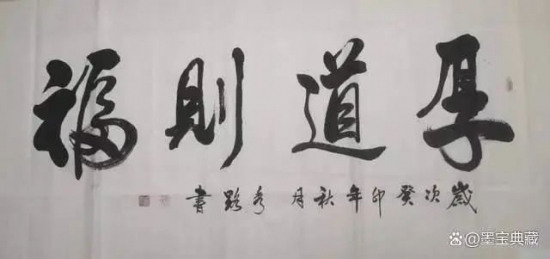 厚道則福
歲次癸卯年秋月秀路書
墨宝典藏